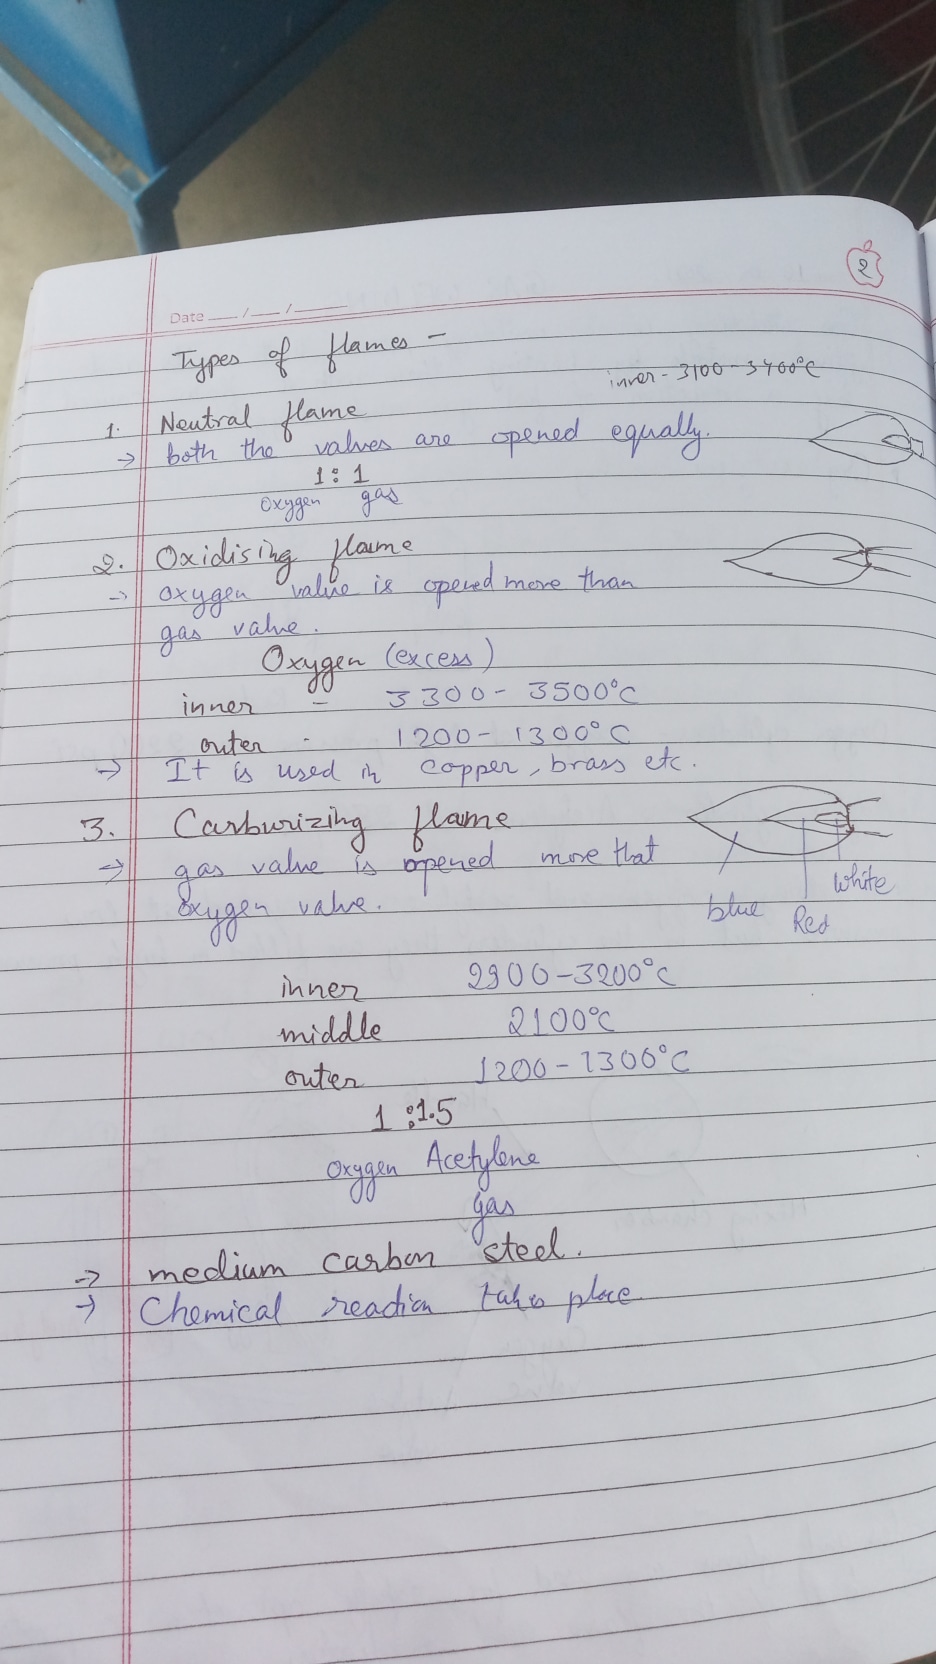 2
Date __/__/____
Types of flames -
inner - 3100 - 3400°C
1. Neutral flame
→ both the valves are opened equally.
1 : 1
Oxygen gas
2. Oxidising flame
→ oxygen valve is opened more than
gas valve.
Oxygen (excess)
inner - 3300 - 3500°C
outer - 1200 - 1300°C
→ It is used in copper, brass etc.
3. Carburizing flame
→ gas valve is opened more that
oxygen valve.
white
blue
Red
inner 2900 - 3200°C
middle 2100°C
outer 1200 - 1300°C
1 : 1.5
oxygen Acetylene
gas
→ medium carbon steel.
→ Chemical reaction takes place